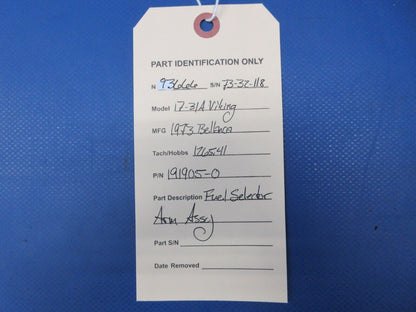 PART IDENTIFICATION ONLY
N 93666 S/N 73-32-118
Model 17-31A Viking
MFG 1973 Bellanca
Tach/Hobbs 1765.41
P/N 191905-0
Part Description Fuel Selector
Arm Assy
Part S/N
Date Removed